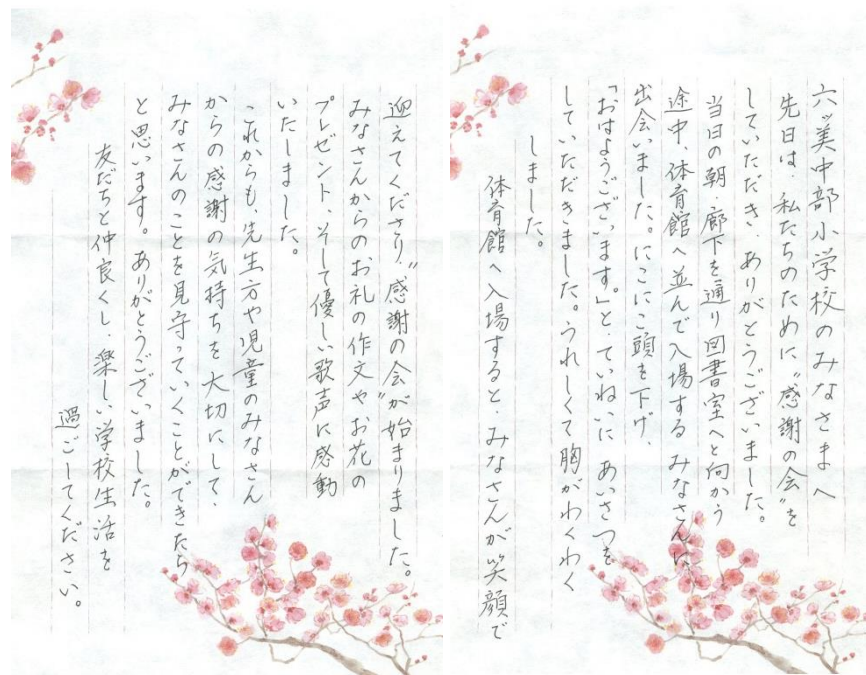 六ツ美中部小学校のみなさまへ
先日は、私たちのために“感謝の会”を
していただき、ありがとうございました。
当日の朝、廊下を通り図書室へと向かう
途中、体育館へ並んで入場するみなさんに
出会いました。にこにこ頭を下げ、
「おはようございます。」と、ていねいに あいさつを
していただきました。うれしくて胸がわくわく
しました。
体育館へ入場すると、みなさんが笑顔で
迎えてくださり、“感謝の会”が始まりました。
みなさんからのお礼の作文やお花の
プレゼント、そして優しい歌声に感動
いたしました。
これからも、先生方や児童のみなさん
からの感謝の気持ちを大切にして、
みなさんのことを見守っていくことができたら
と思います。ありがとうございました。
友だちと仲良くし、楽しい学校生活を
過ごしてください。